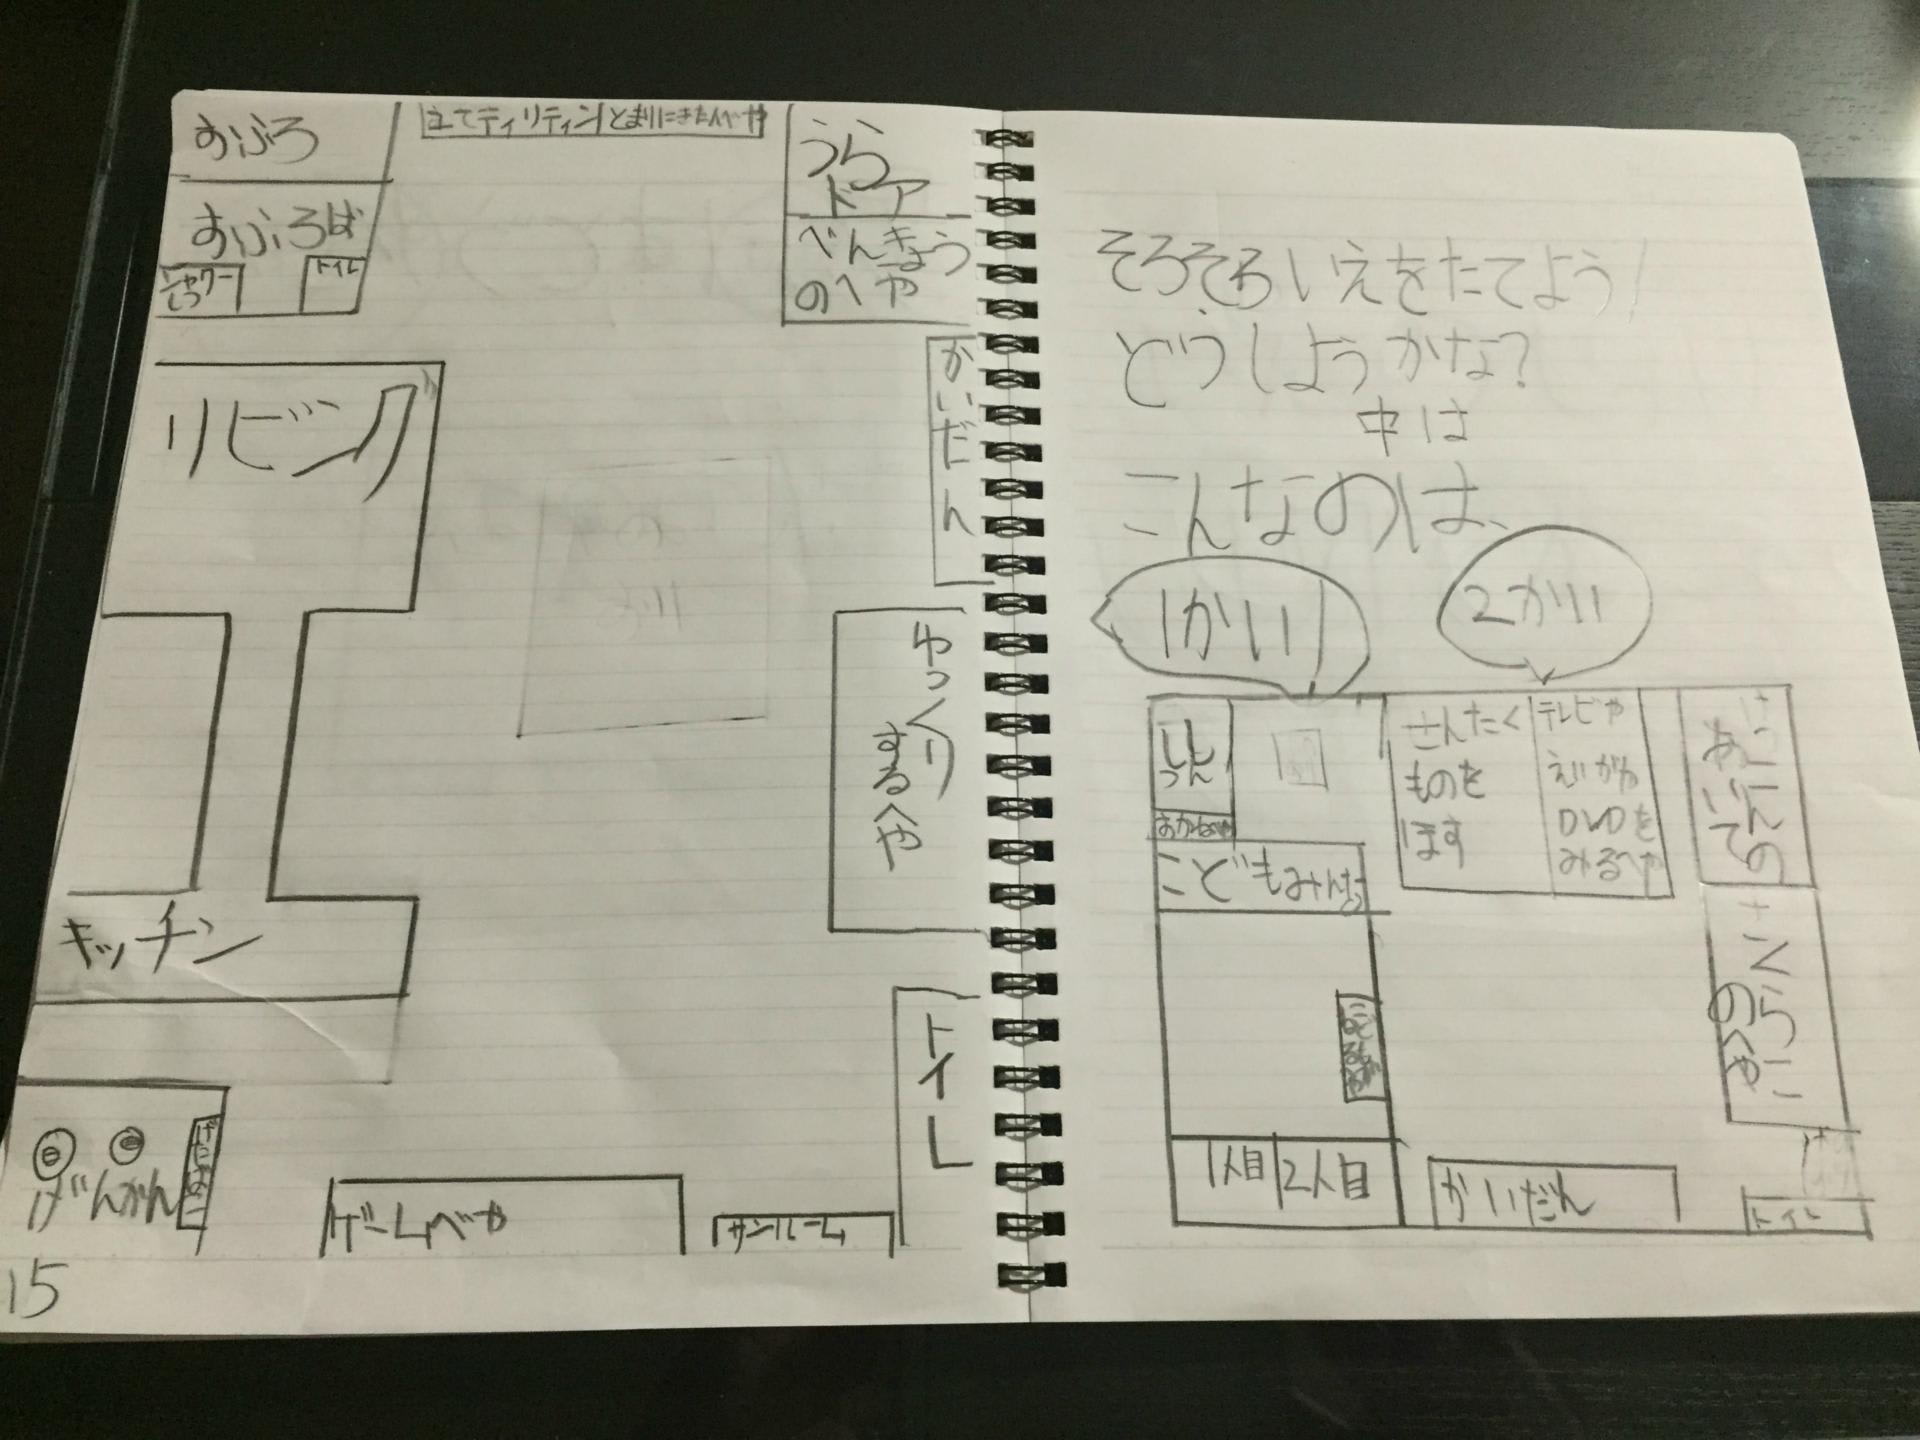 おふろ
おふろば
シャワー
しつ
トイレ
とまりにきた人べや
うら
ドア
べんきょう
のへや
かいだん
リビング
ゆっくり
するへや
キッチン
トイレ
げんかん
ゲームべや
サンルーム
15
そろそろいえをたてよう!
どうしようかな?
中は
こんなのは、
1かい
2かい
しん
しつ
おかねべや
こどもみんな
1人目
2人目
せんたく
ものを
ほす
テレビや
えいがや
DVDを
みるへや
かいだん
トイレ